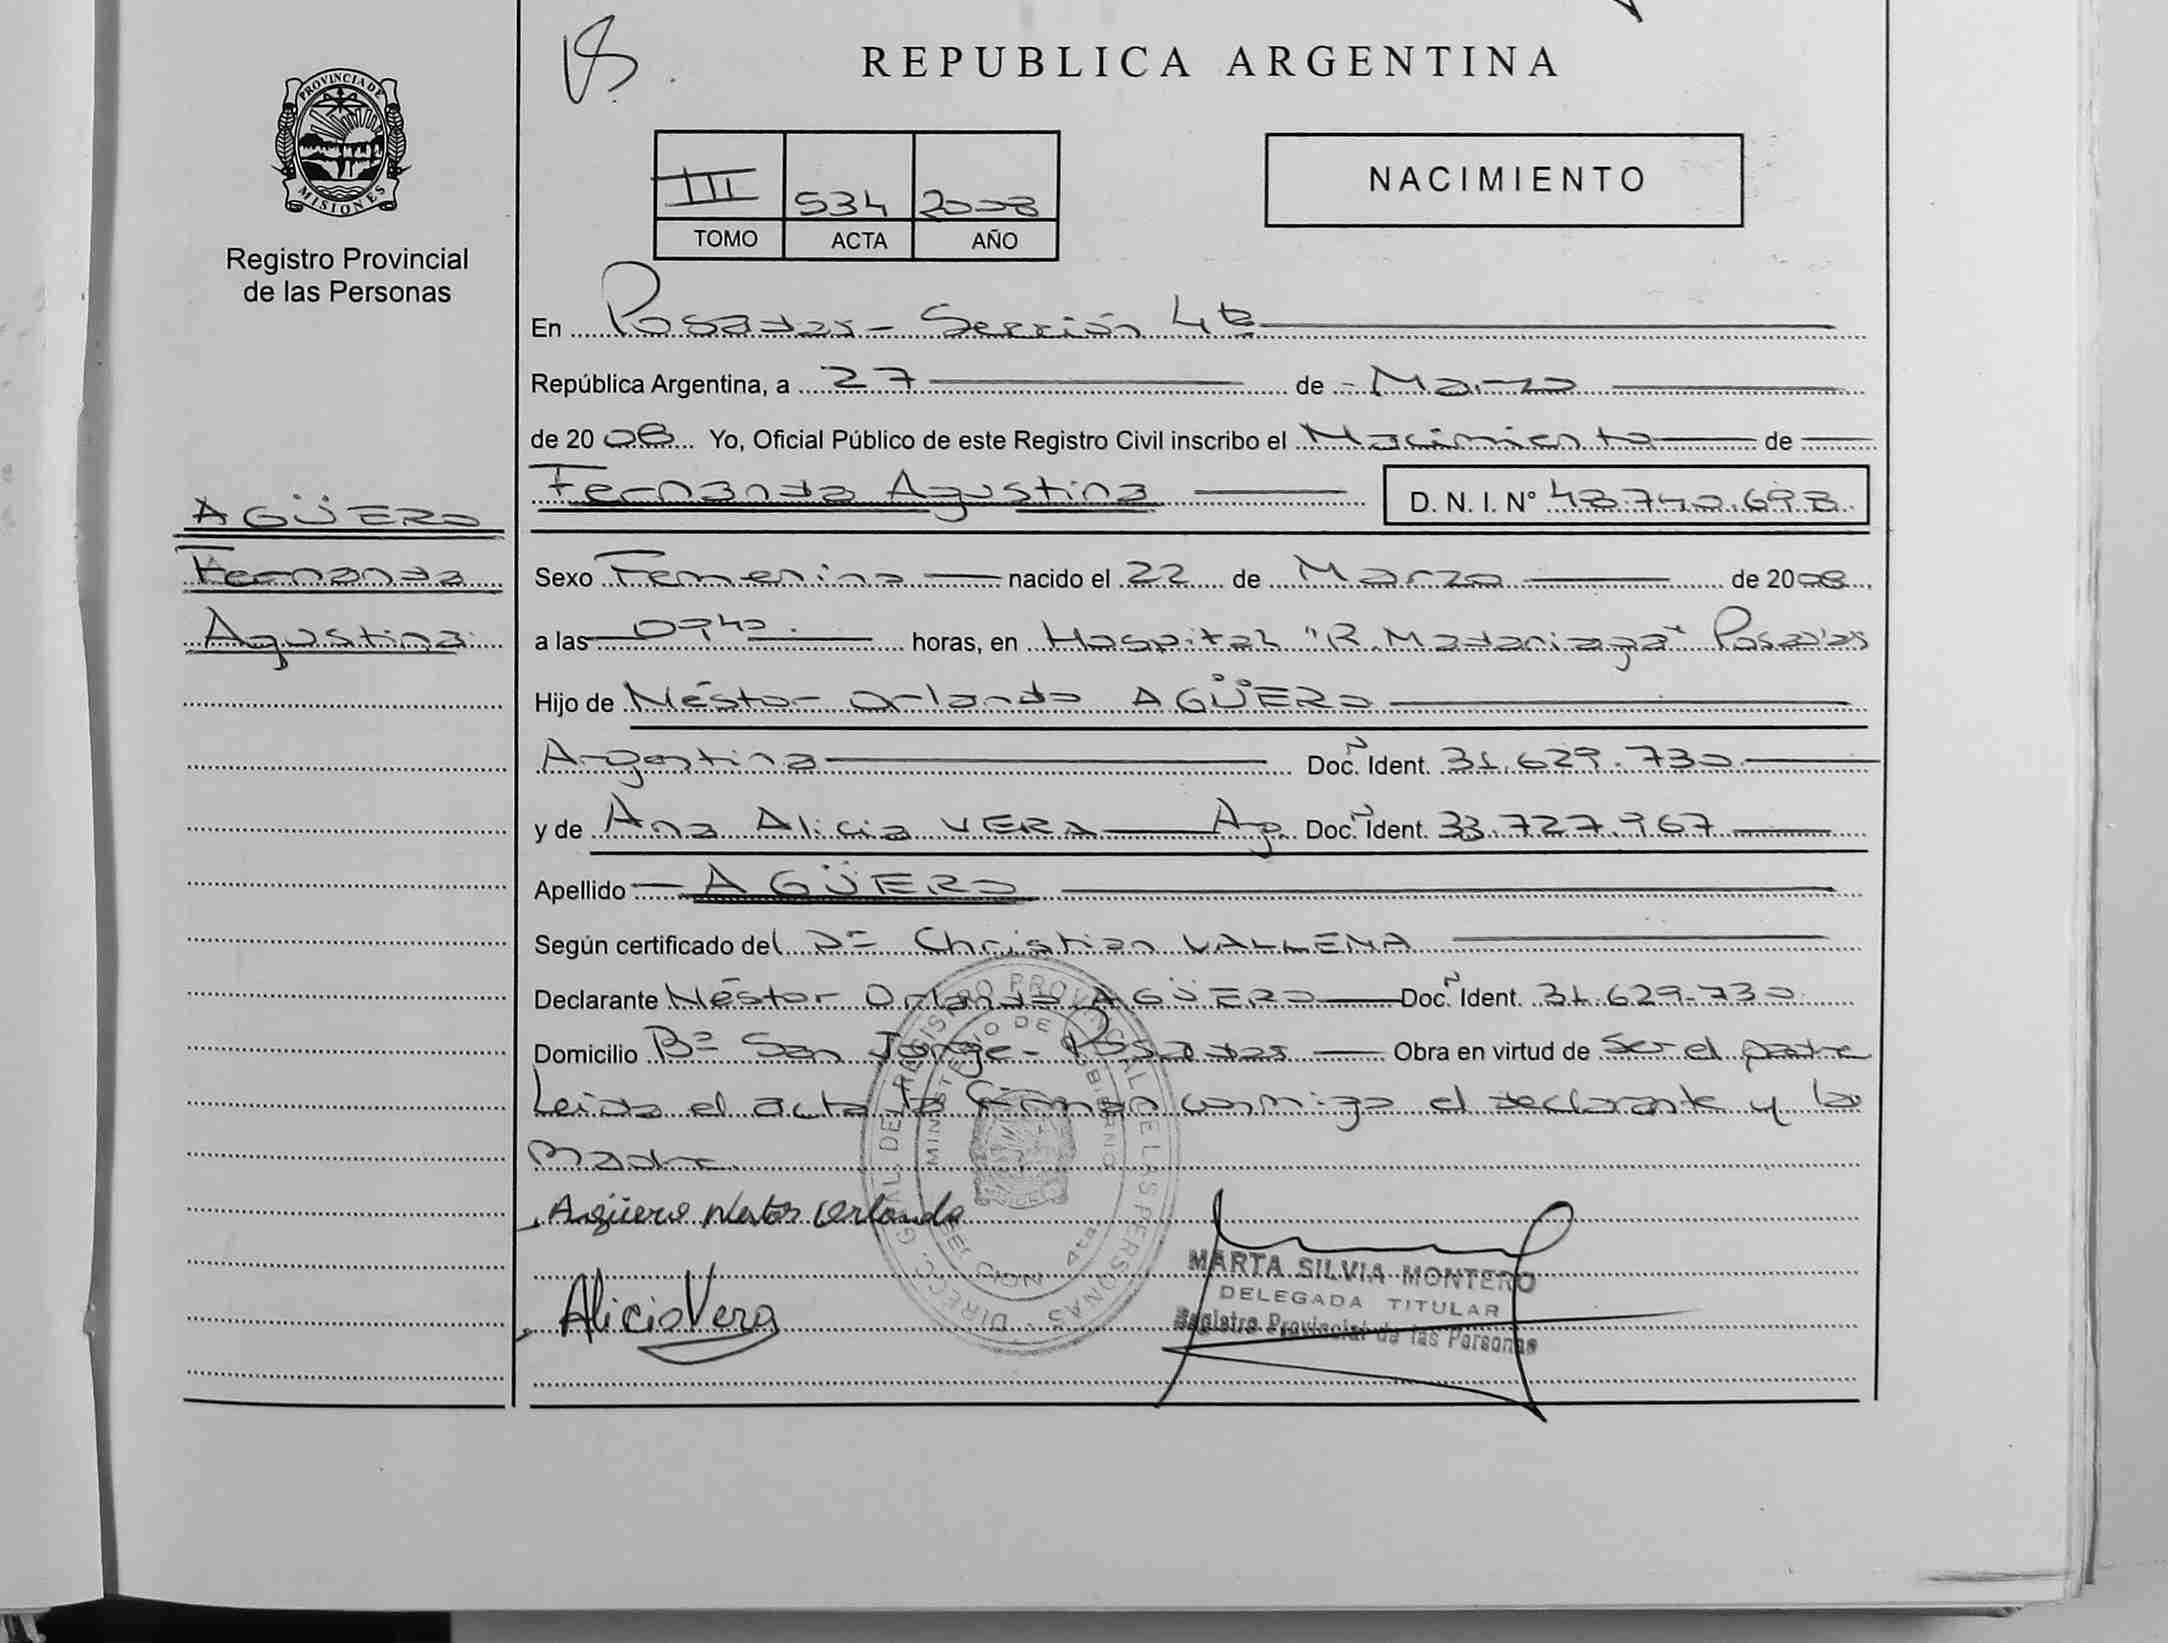 REPUBLICA ARGENTINA
PROVINCIA DE MISIONES
Registro Provincial
de las Personas
III 534 2008
TOMO ACTA AÑO
NACIMIENTO
En Posadas - Sección 4ta
República Argentina, a 27 de Marzo
de 2008 Yo, Oficial Público de este Registro Civil inscribo el Nacimiento de
Fernanda Agustina D. N. I. N° 48.740.698
AGÜERO
Fernanda
Agustina
Sexo Femenino nacido el 22 de Marzo de 2008
a las 0940 horas, en Hospital "R. Madariaga" Posadas
Hijo de Néstor Orlando AGÜERO
Argentina Doc. Ident. 31.629.730
y de Ana Alicia VERA Ag. Doc. Ident. 33.727.967
Apellido AGÜERO
Según certificado del Dr Christian VALLENA
Declarante Néstor Orlando AGÜERO Doc. Ident. 31.629.730
Domicilio Bº San Jorge - Posadas Obra en virtud de ser el padre
Leida el acta la firman conmigo el declarante y la
Madre
Agüero Nestor Orlando
Alicia Vera
DIRECC. GRAL. DEL REGISTRO PROVINCIAL DE LAS PERSONAS
MINISTERIO DE GOBIERNO
SECCION 4ta
MARTA SILVIA MONTERO
DELEGADA TITULAR
Registro Provincial de las Personas